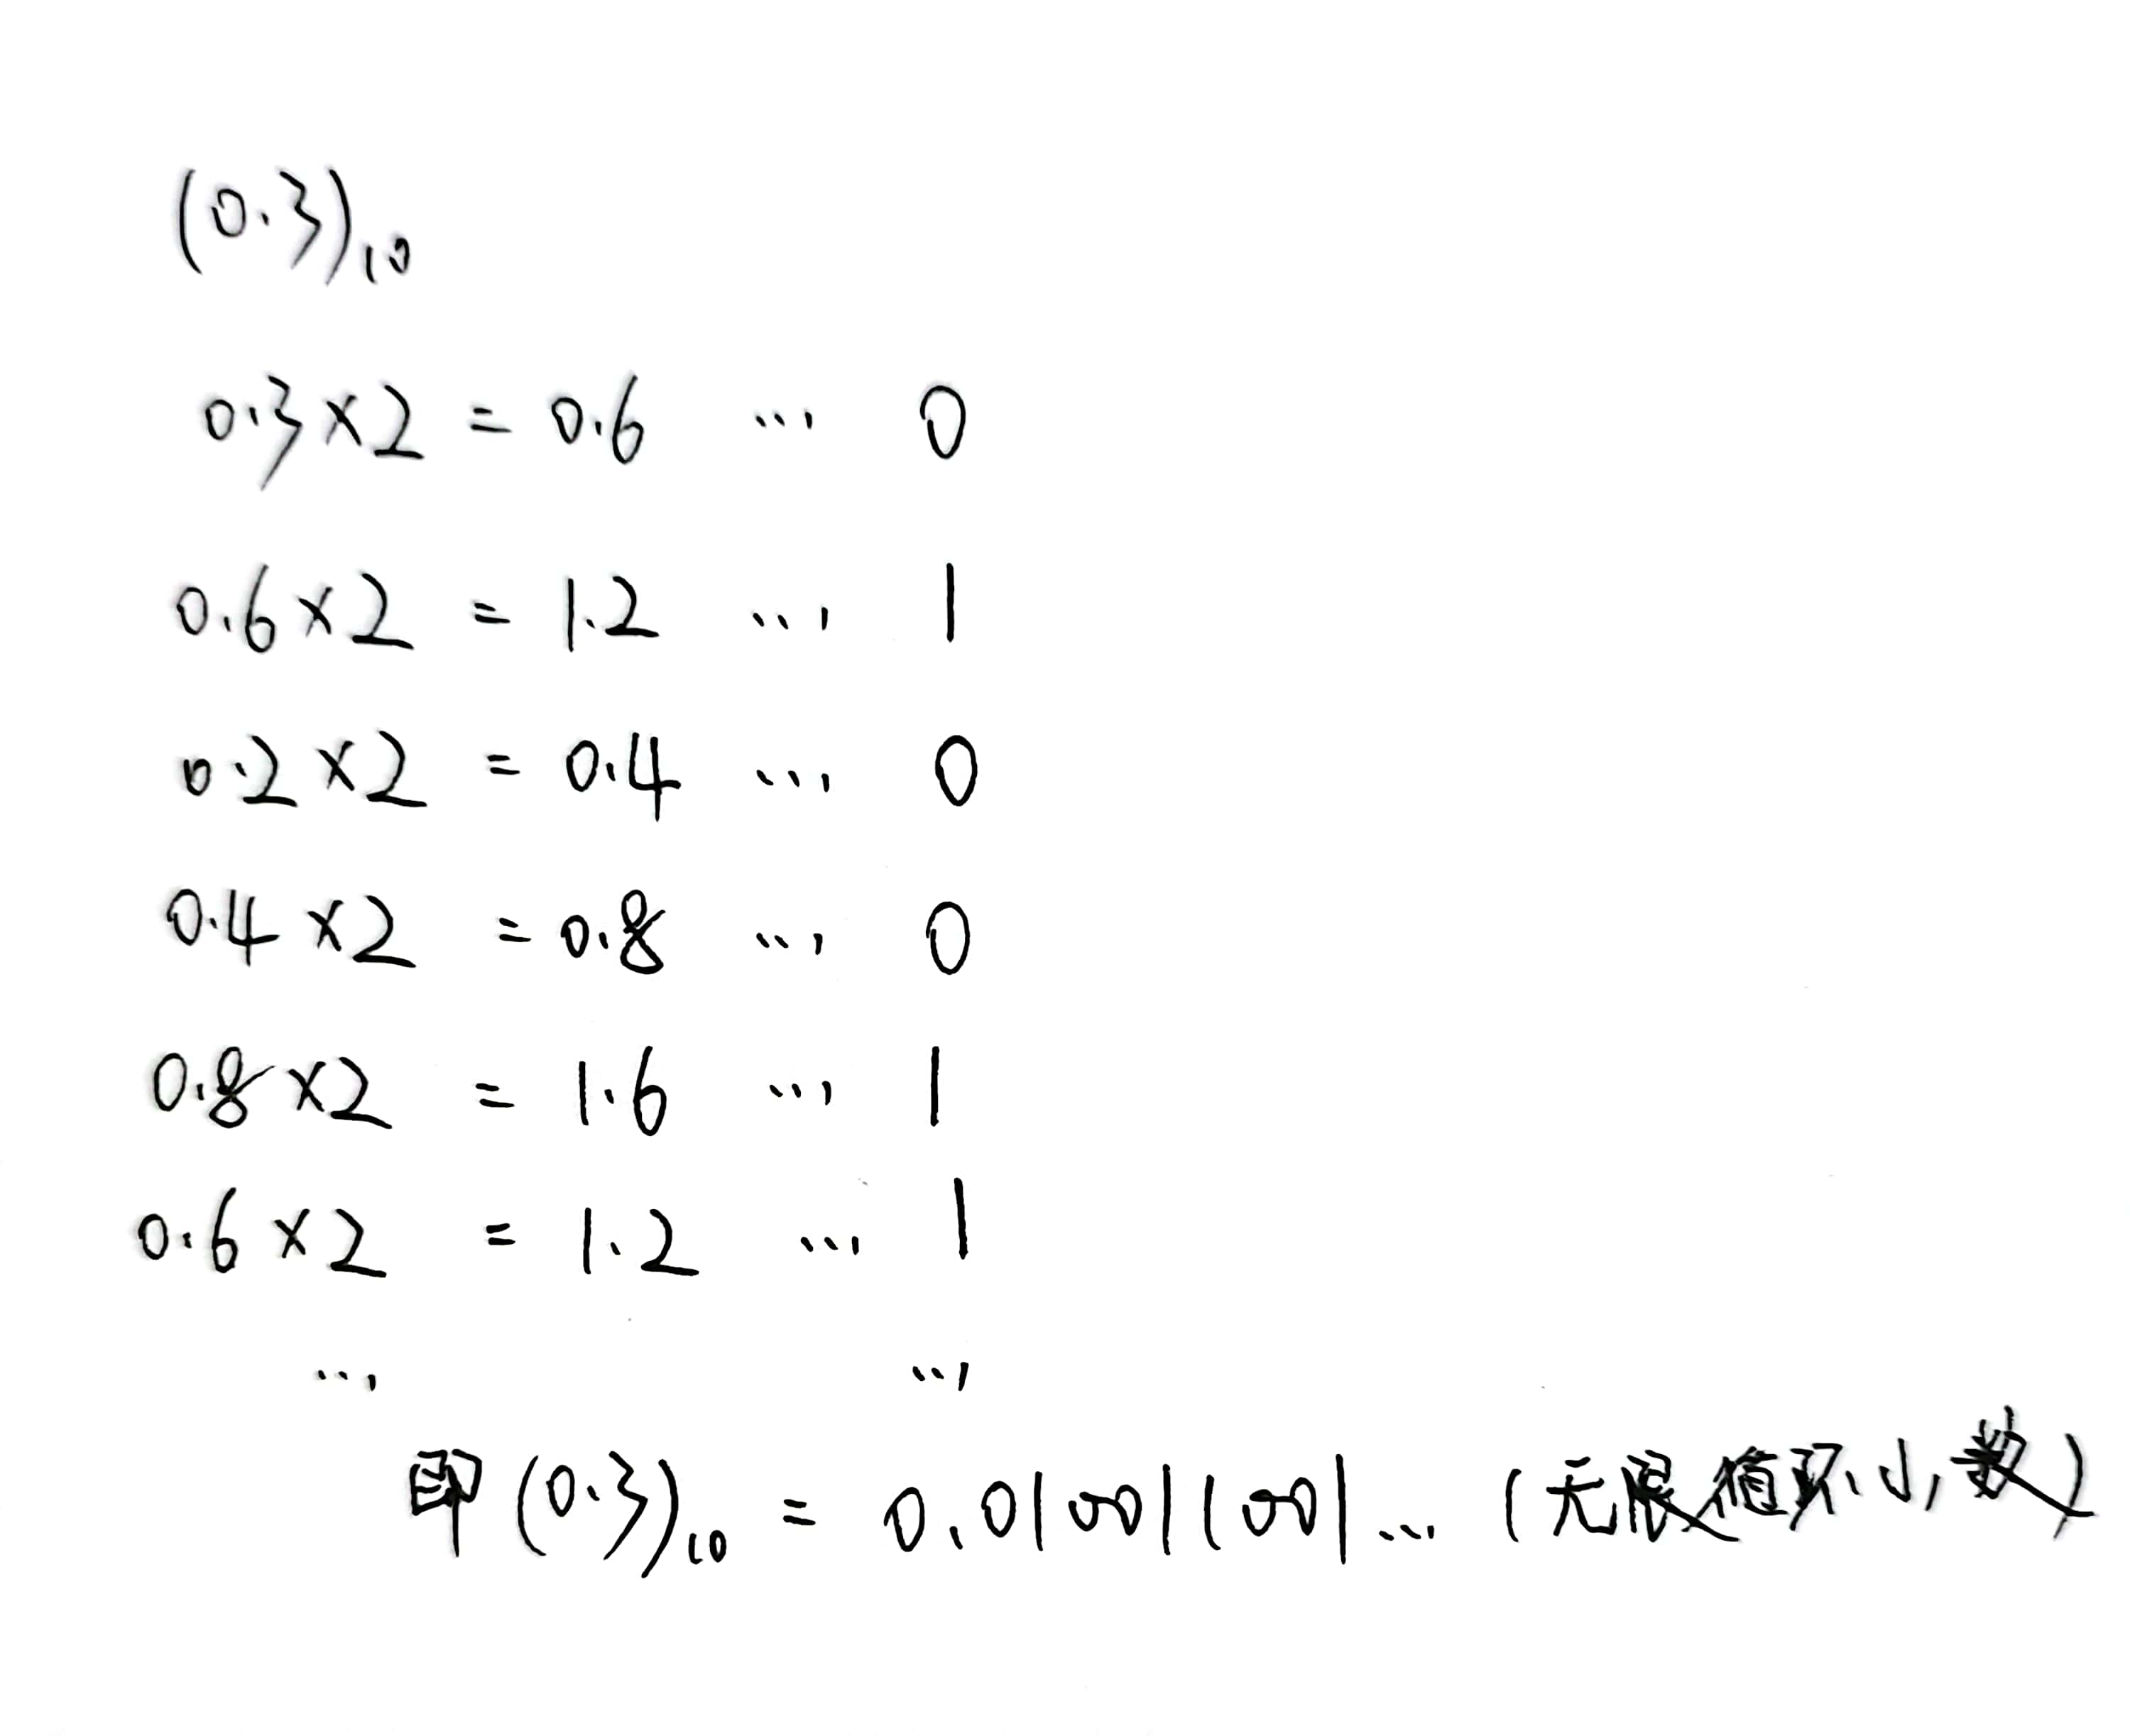 (0.3)₁₀
0.3×2 = 0.6 ... 0
0.6×2 = 1.2 ... 1
0.2×2 = 0.4 ... 0
0.4×2 = 0.8 ... 0
0.8×2 = 1.6 ... 1
0.6×2 = 1.2 ... 1
... ...
即(0.3)₁₀ = 0.010011001... (无限循环小数)